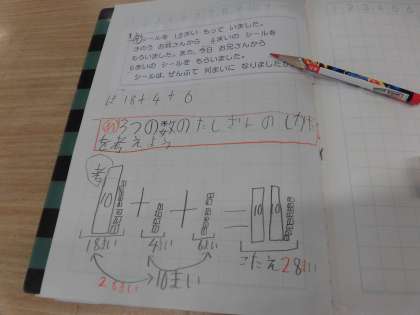 シールを 18まい もって いました。
きのう お兄さんから 4まいの シールを
もらいました。また、今日 お兄さんから
6まいの シールを もらいました。
シールは、ぜんぶで 何まいに なりましたか
18+4+6
3つの数のたしざんのしかた
を考えよう
考
10 + + = 10 10
18まい 4まい 6まい こたえ28まい
10まい